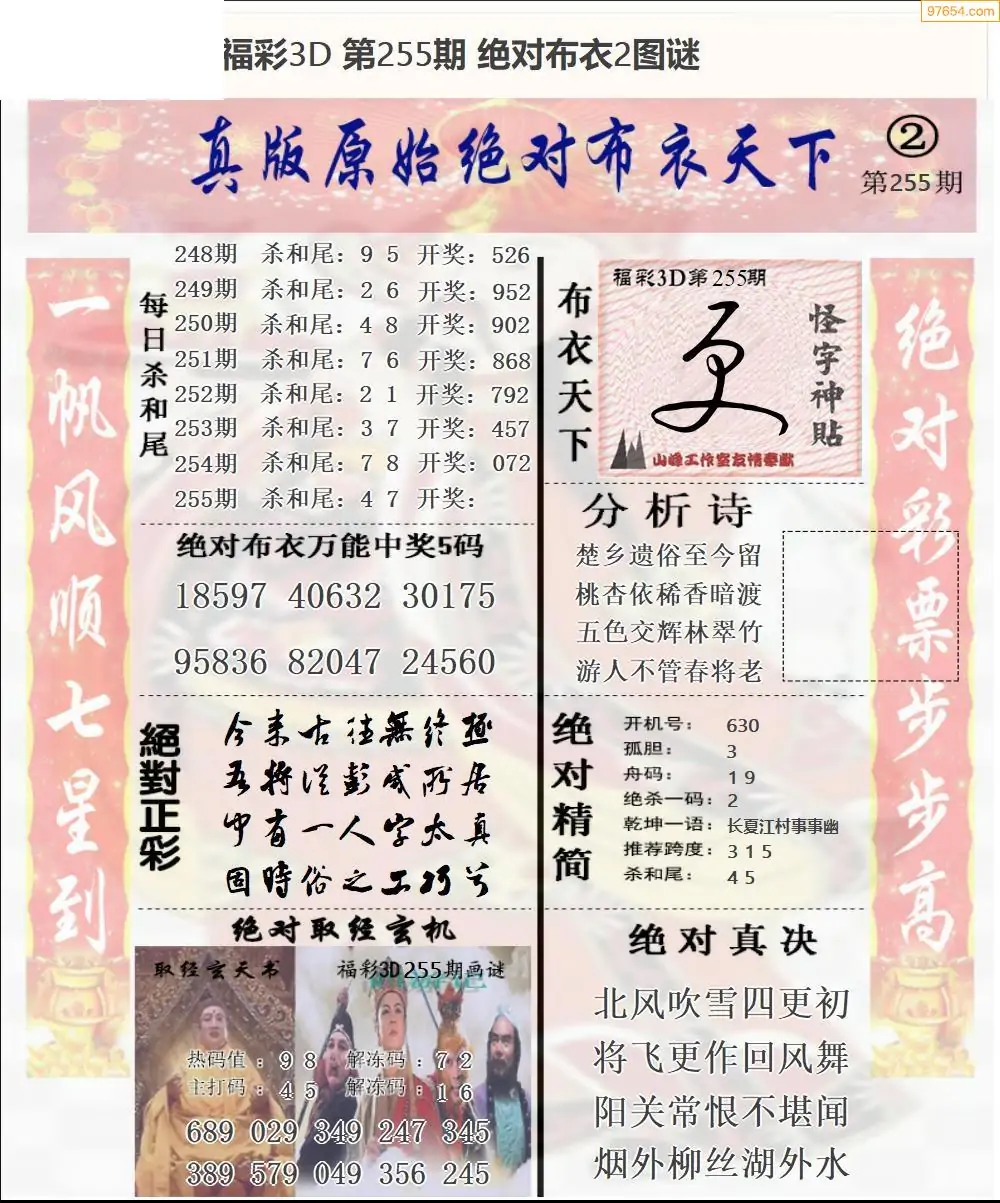 97654.com
福彩3D 第255期 绝对布衣2图谜
真版原始绝对布衣天下
②
第255期
一帆风顺七星到
每日杀和尾
248期 杀和尾：9 5 开奖：526
249期 杀和尾：2 6 开奖：952
250期 杀和尾：4 8 开奖：902
251期 杀和尾：7 6 开奖：868
252期 杀和尾：2 1 开奖：792
253期 杀和尾：3 7 开奖：457
254期 杀和尾：7 8 开奖：072
255期 杀和尾：4 7 开奖：
绝对布衣万能中奖5码
18597 40632 30175
95836 82047 24560
絕對正彩
今来古往無终極
吾将従彭咸所居
中有一人字太真
固時俗之工巧兮
绝对取经玄机
取经玄天书
福彩3D255期画谜
热码值：9 8 解冻码：7 2
主打码：4 5 解冻码：1 6
689 029 349 247 345
389 579 049 356 245
布衣天下
福彩3D第255期
怪字神贴
山峰工作室友情奉献
分析诗
楚乡遗俗至今留
桃杏依稀香暗渡
五色交辉林翠竹
游人不管春将老
绝对精简
开机号：630
孤胆：3
舟码：1 9
绝杀一码：2
乾坤一语：长夏江村事事幽
推荐跨度：3 1 5
杀和尾：4 5
绝对真决
北风吹雪四更初
将飞更作回风舞
阳关常恨不堪闻
烟外柳丝湖外水
绝对彩票步步高